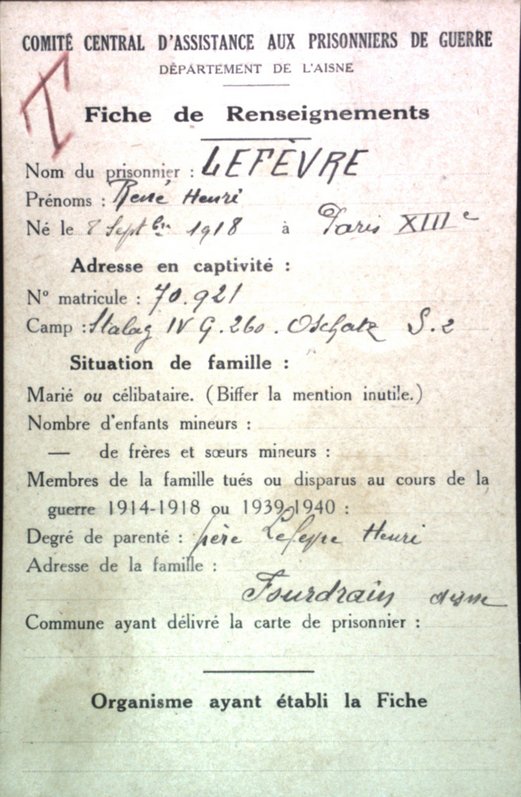 COMITÉ CENTRAL D'ASSISTANCE AUX PRISONNIERS DE GUERRE
DÉPARTEMENT DE L'AISNE
T
Fiche de Renseignements
Nom du prisonnier : LEFÈVRE
Prénoms : René Henri
Né le 8 Septbre 1918 à Paris XIIIe
Adresse en captivité :
N° matricule : 70.921
Camp : Stalag IV G. 260. Oschatz S. 2
Situation de famille :
Marié ou célibataire. (Biffer la mention inutile.)
Nombre d'enfants mineurs :
— de frères et sœurs mineurs :
Membres de la famille tués ou disparus au cours de la
guerre 1914-1918 ou 1939-1940 :
Degré de parenté : père Lefevre Henri
Adresse de la famille :
Fourdrain Aisne
Commune ayant délivré la carte de prisonnier :
Organisme ayant établi la Fiche